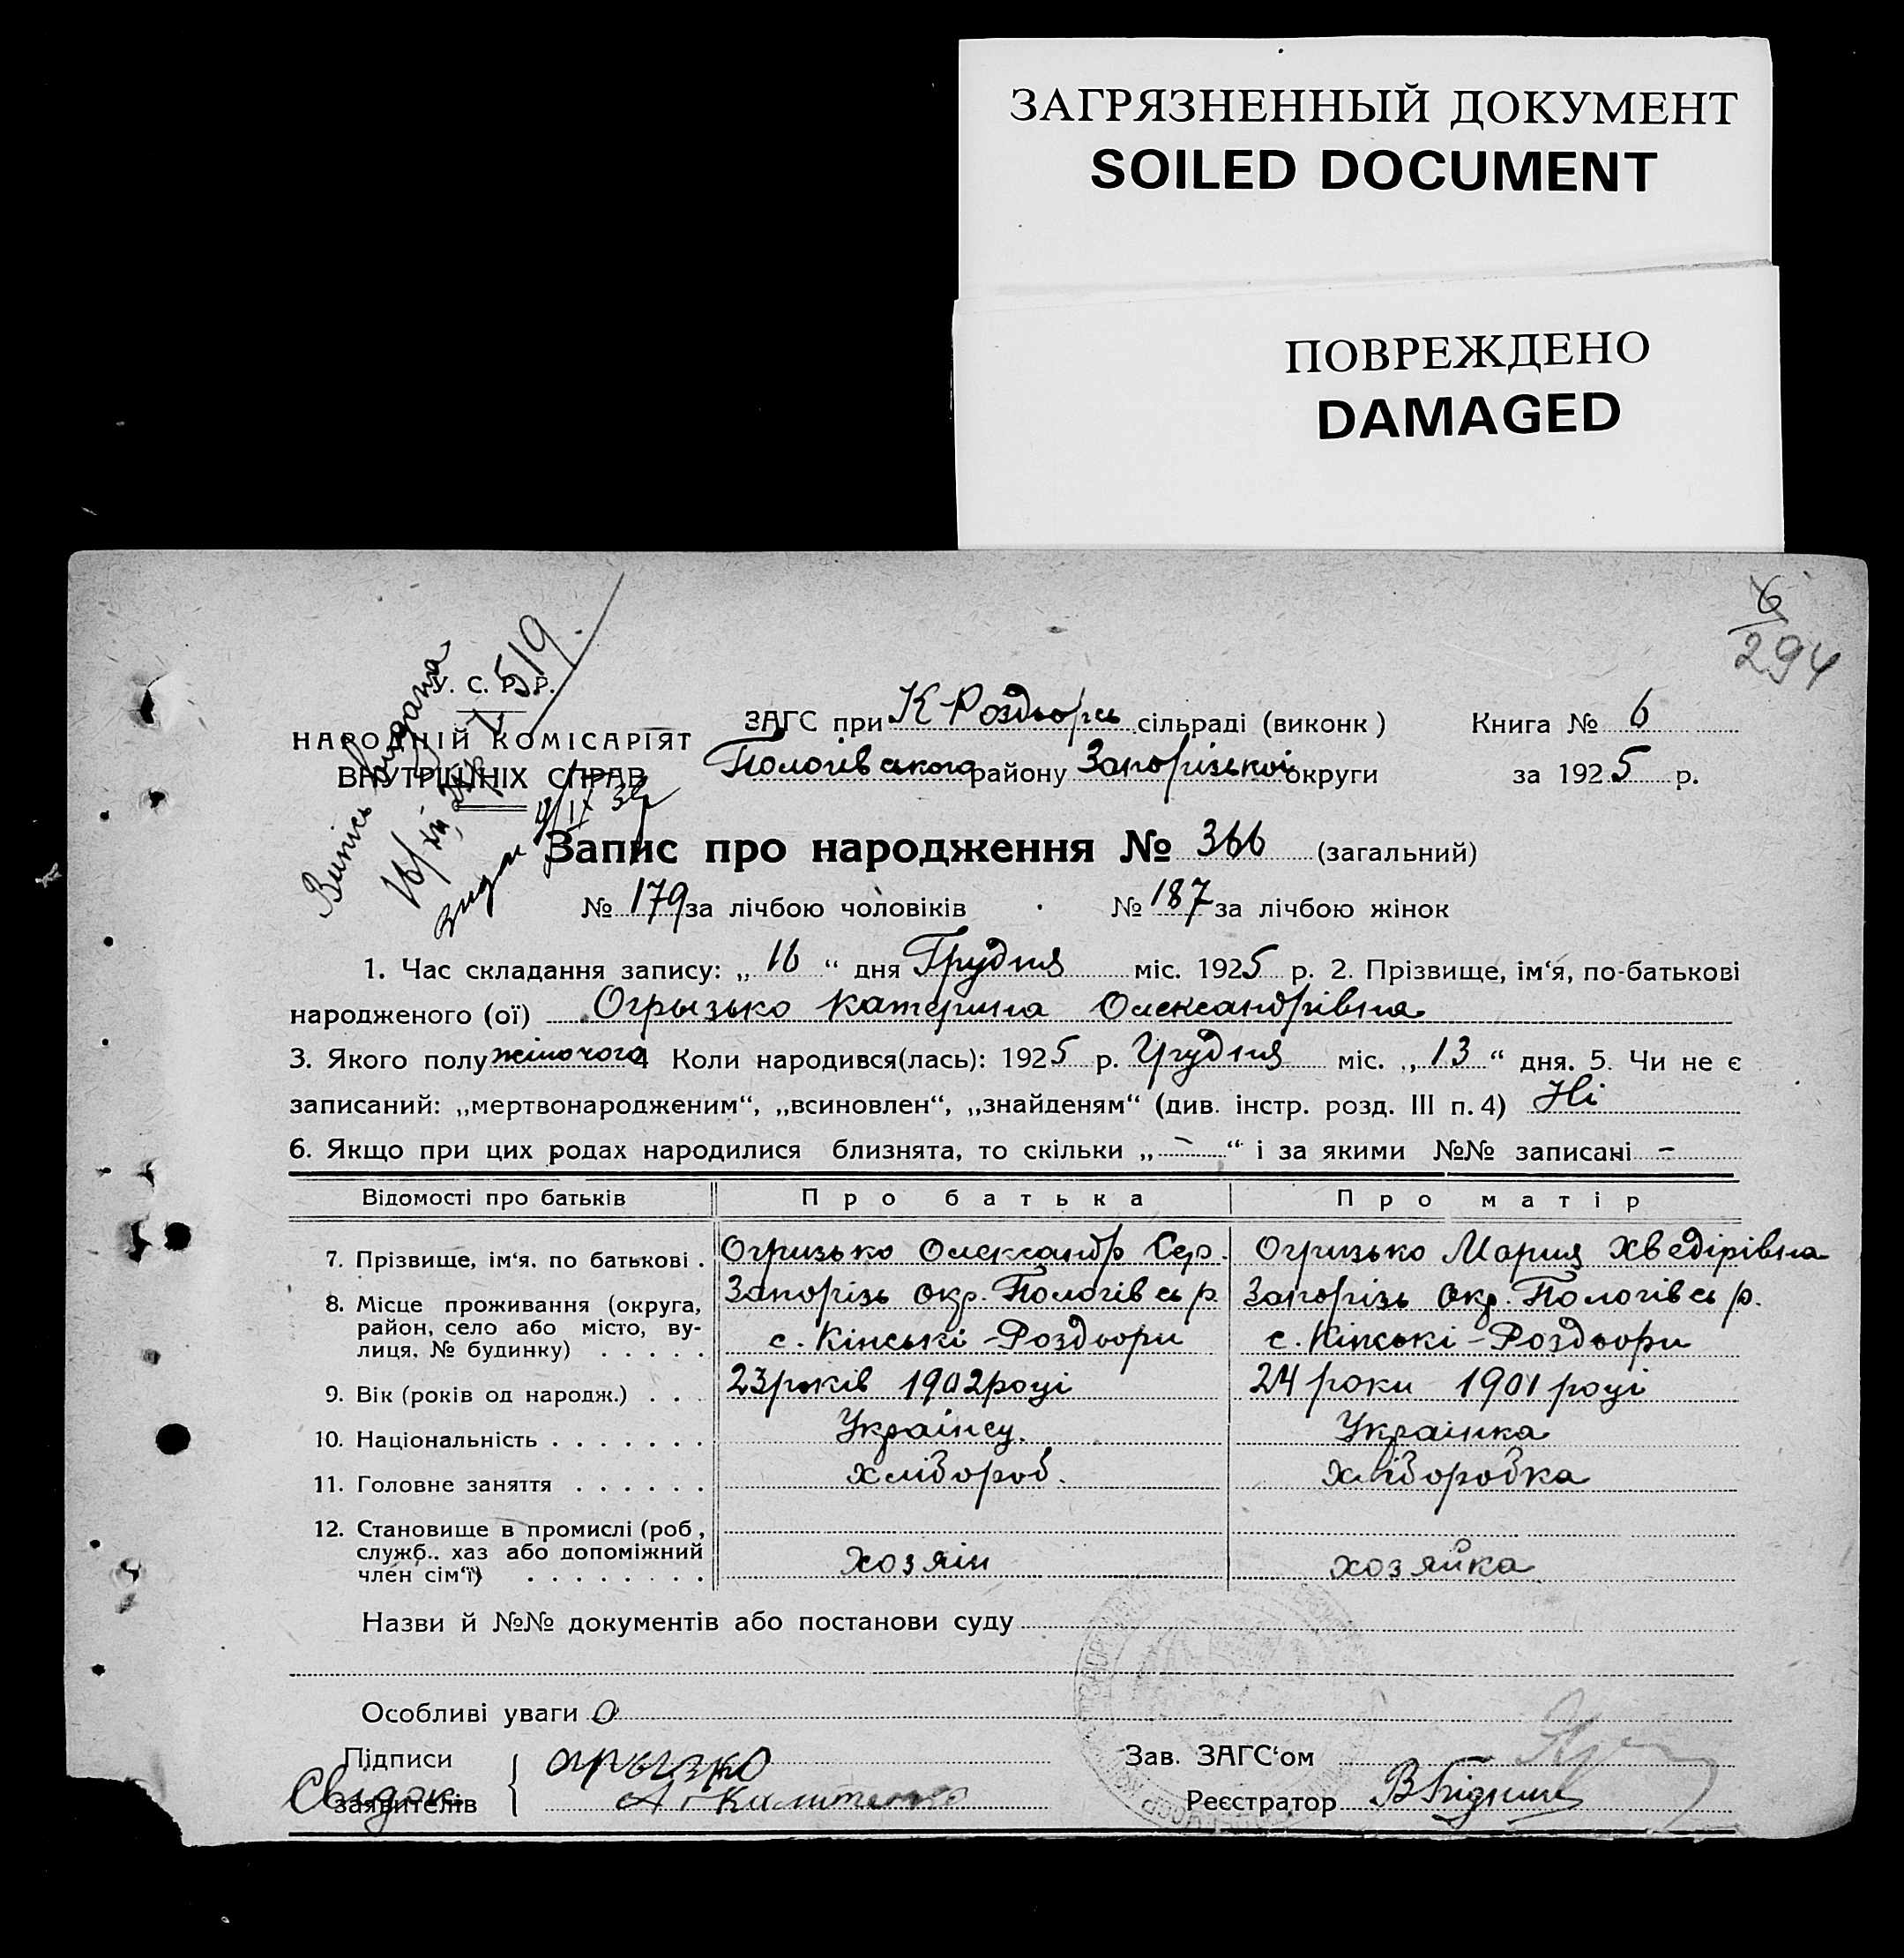 ЗАГРЯЗНЕННЫЙ ДОКУМЕНТ
SOILED DOCUMENT
ПОВРЕЖДЕНО
DAMAGED
6
294
Випись видана
519
У. С. Р. Р.
НАРОДНІЙ КОМІСАРІЯТ
ВНУТРІШНІХ СПРАВ
ЗАГС при К-Роздорсь сільраді (виконк) Книга № 6
Пологівського району Запорізької округи за 1925 р.
Запис про народження № 366 (загальний)
№ 179 за лічбою чоловіків № 187 за лічбою жінок
1. Час складання запису: „ 16 “ дня Грудня міс. 1925 р. 2. Прізвище, ім‘я, по-батькові
народженого (ої) Огрызько Катерина Олександрівна
3. Якого полу жіночого 4 Коли народився(лась): 1925 р. Грудня міс. „ 13 “ дня. 5. Чи не є
записаний: „мертвонародженим“, „всиновлен“, „знайденям“ (див. інстр. розд. III п. 4) Ні
6. Якщо при цих родах народилися близнята, то скільки „ – “ і за якими №№ записані –
Відомості про батьків Про батька Про матір
7. Прізвище, ім‘я, по батькові . Огризько Олександр Сер. Огризько Мария Хведірівна
8. Місце проживання (округа, Запорізь окр. Пологівсь р. Запорізь окр. Пологівсь р.
район, село або місто, ву- с. Кінські-Роздори с. Кінські-Роздори
лиця, № будинку) . . . . .
9. Вік (років од народж.) . . . 23 років 1902 році 24 роки 1901 році
10. Національність . . . . . . . Українец. Українка
11. Головне заняття . . . . . . хлібороб. хліборобка
12. Становище в промислі (роб,
служб., хаз або допоміжний хозяін хозяйка
член сім‘ї) . . . . . . . .
Назви й №№ документів або постанови суду
Особливі уваги 0
Підписи огрызко Зав. ЗАГС‘ом
Свідок
заявителів Реєстратор